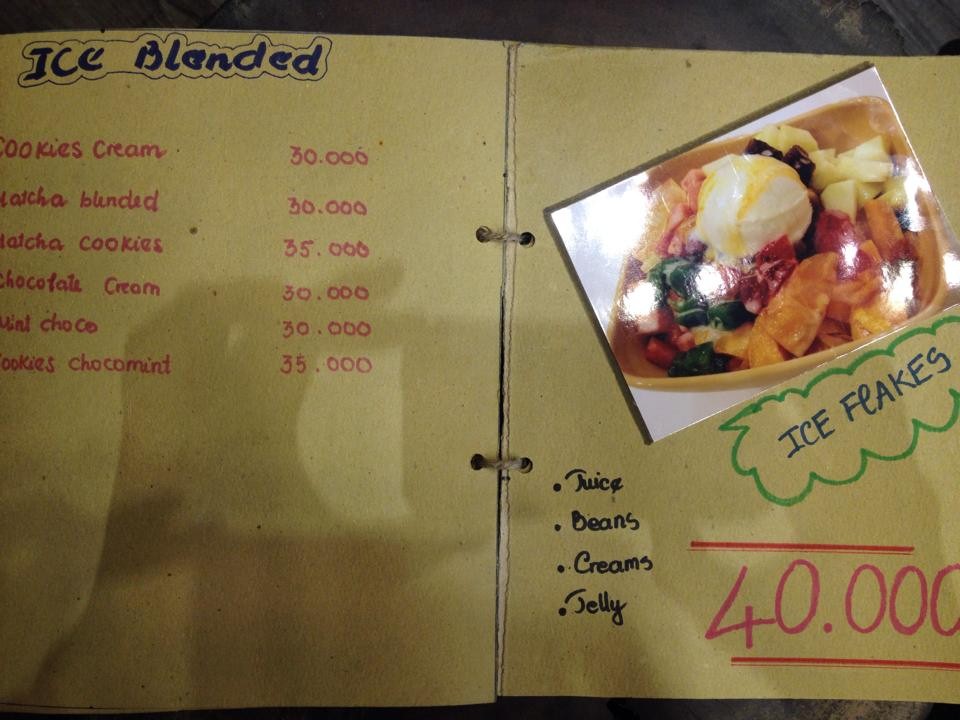 Ice Blended
Cookies Cream 30.000
Matcha blended 30.000
Matcha cookies 35.000
Chocolate Cream 30.000
Mint choco 30.000
Cookies chocomint 35.000
ICE FLAKES
• Juice
• Beans
• Creams
• Jelly
40.000